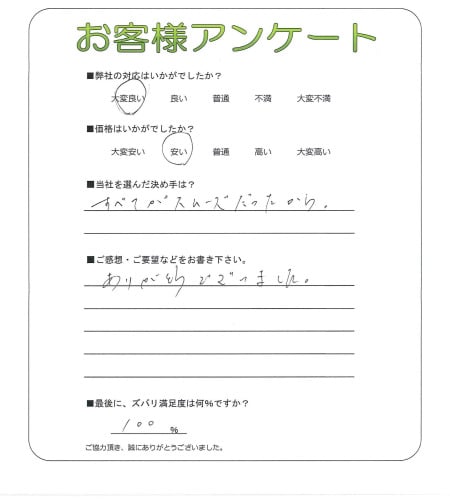 お客様アンケート
■弊社の対応はいかがでしたか？
大変良い 良い 普通 不満 大変不満
■価格はいかがでしたか？
大変安い 安い 普通 高い 大変高い
■当社を選んだ決め手は？
すべてがスムーズだったから。
■ご感想・ご要望などをお書き下さい。
ありがとうございました。
■最後に、ズバリ満足度は何％ですか？
100 ％
ご協力頂き、誠にありがとうございました。